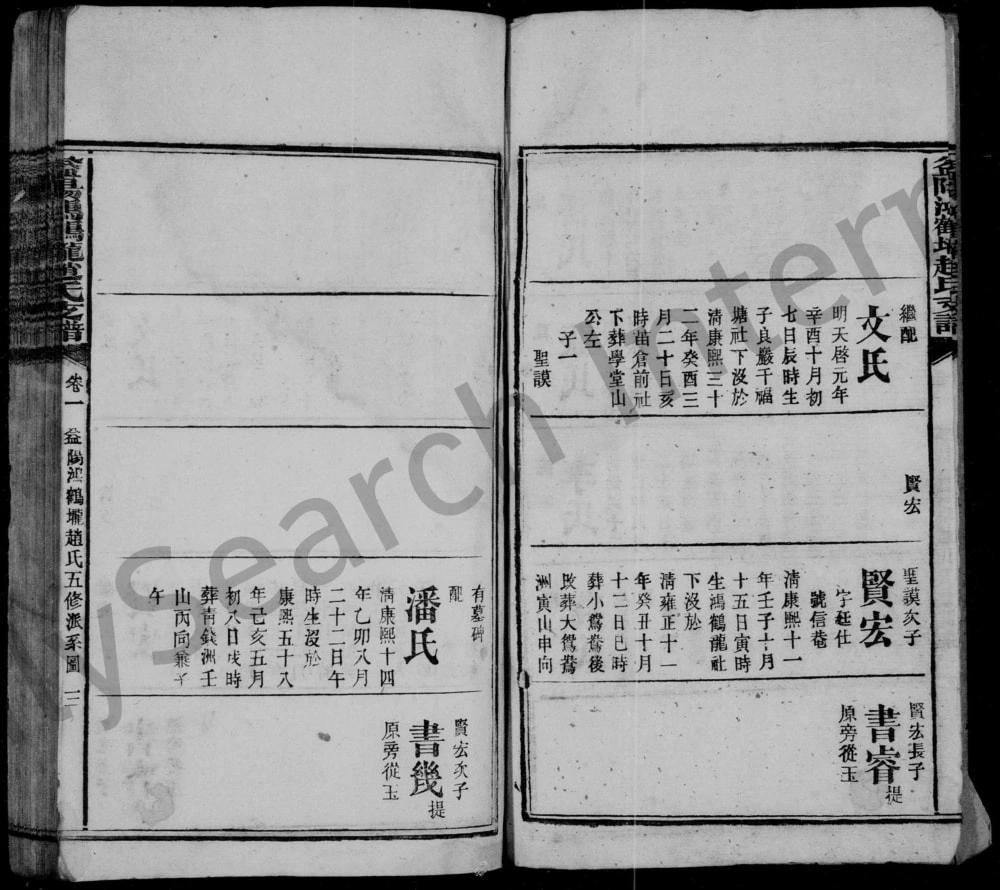 益陽鴻鶴壠趙氏支譜
繼配
文氏
明天啓元年
辛酉十月初
七日辰時生
子良嚴千福
塘社下沒於
清康熙三十
二年癸酉三
月二十日亥
時苗倉前社
下葬學堂山
公左
子一
聖謨
賢宏
聖謨次子
賢宏
字廷仕
號信菴
清康熙十一
年壬子十月
十五日寅時
生鴻鶴龍社
下沒於
清雍正十一
年癸丑十月
十二日巳時
葬小鴛鴦後
改葬大鴛鴦
洲寅山申向
賢宏長子
書睿提
原旁從玉
有墓碑
配
潘氏
清康熙十四
年乙卯八月
二十二日午
時生沒於
康熙五十八
年己亥五月
初八日戌時
葬青錢洲壬
山丙向兼子
午
賢宏次子
書幾提
原旁從玉
益陽鴻鶴壠趙氏支譜
卷一
益陽鴻鶴壠趙氏五修派系圖
MySearch Intern